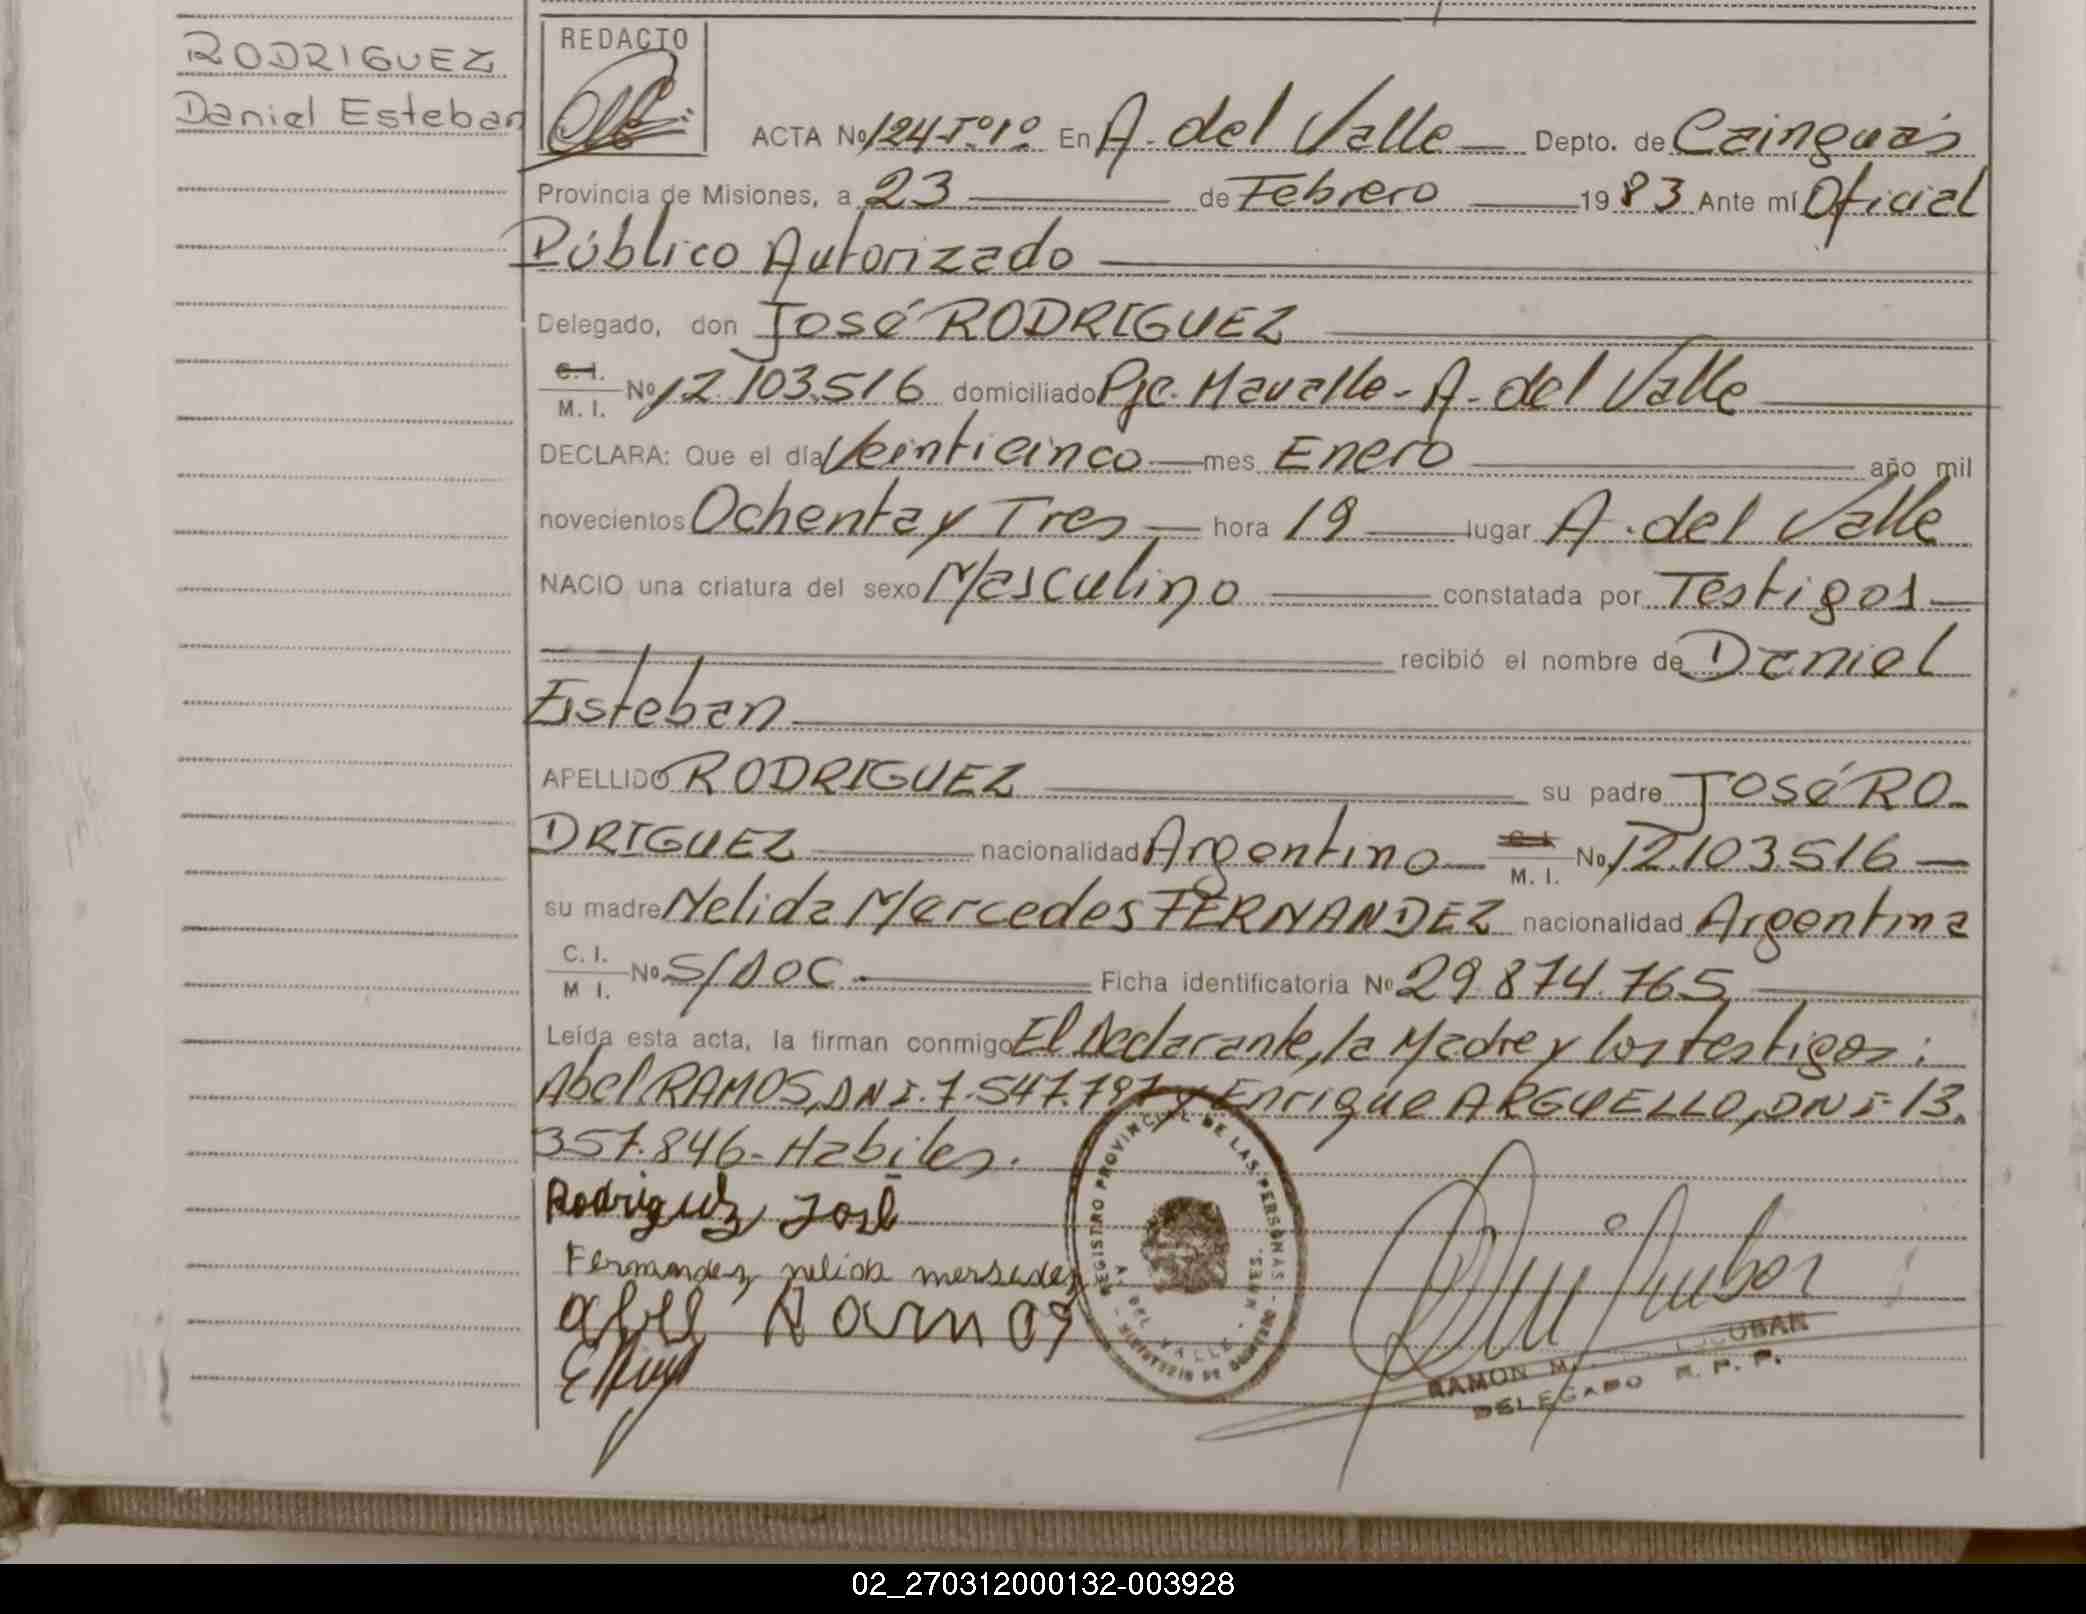 RODRIGUEZ
Daniel Esteban
REDACTO
ACTA Nº 124 Tº1º En A. del Valle — Depto. de Cainguás
Provincia de Misiones, a 23 — de Febrero — 1983 Ante mí Oficial
Público Autorizado —
Delegado, don José RODRIGUEZ —
C. I.
M. I. Nº 12.103.516 domiciliado Pje. Mavalle - A. del Valle —
DECLARA: Que el día Veinticinco — mes Enero — año mil
novecientos Ochenta y Tres — hora 19 — lugar A. del Valle
NACIO una criatura del sexo Masculino — constatada por Testigos —
— recibió el nombre de Daniel
Esteban —
APELLIDO RODRIGUEZ — su padre José RO-
DRIGUEZ — nacionalidad Argentino — C. I. M. I. Nº 12.103.516 —
su madre Nelida Mercedes FERNANDEZ nacionalidad Argentina
C. I.
M I. Nº S/DOC. — Ficha identificatoria Nº 29.874.765 —
Leída esta acta, la firman conmigo El Declarante, la Madre y los testigos:
Abel RAMOS, DNI. 7.547.797 y Enrique ARGUELLO, DNI- 13.
357.846- Habiles.
Rodriguez José
Fernandez nelida mersedes
abel Ramos
REGISTRO PROVINCIAL DE LAS PERSONAS
A. DEL VALLE - MNES.
MINISTERIO DE GOBIERNO
RAMON M. ESCOBAR
DELEGADO R. P. P.
02_270312000132-003928